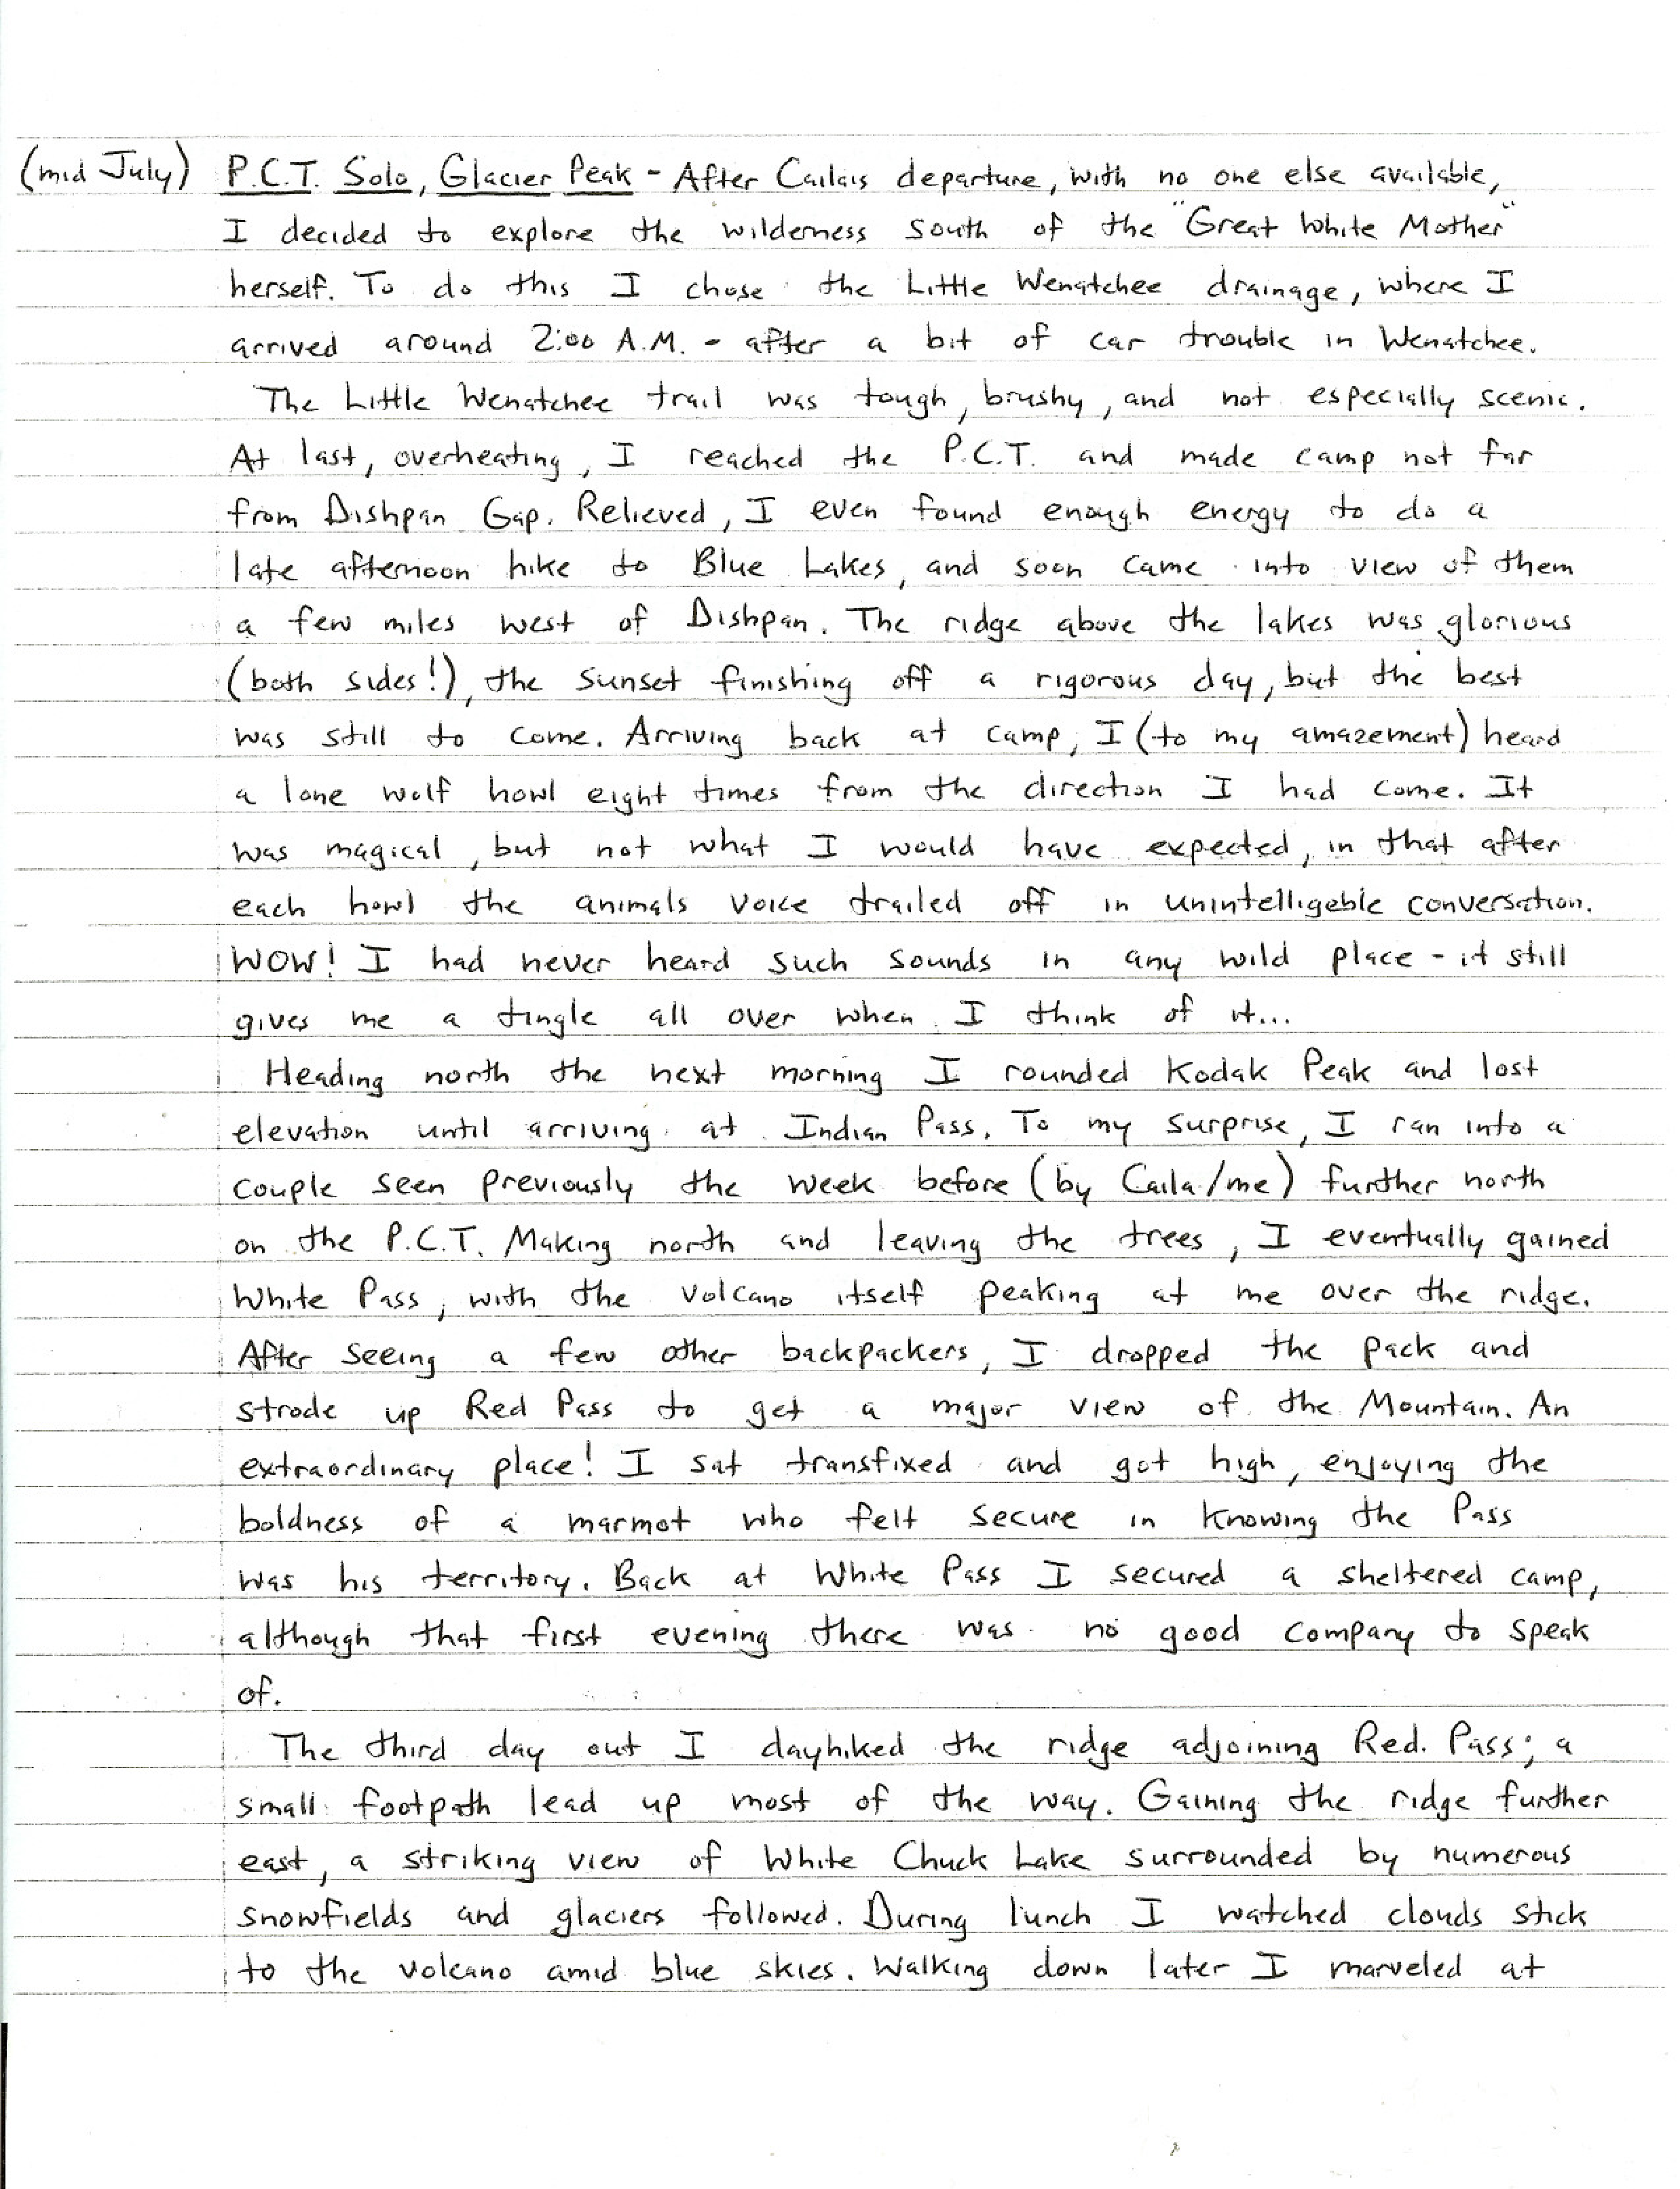 (mid July) P.C.T. Solo, Glacier Peak - After Cailas departure, with no one else available,
I decided to explore the wilderness south of the "Great White Mother"
herself. To do this I chose the Little Wenatchee drainage, where I
arrived around 2:00 A.M. - after a bit of car trouble in Wenatchee.
The Little Wenatchee trail was tough, brushy, and not especially scenic.
At last, overheating, I reached the P.C.T. and made camp not far
from Dishpan Gap. Relieved, I even found enough energy to do a
late afternoon hike to Blue Lakes, and soon came into view of them
a few miles west of Dishpan. The ridge above the lakes was glorious
(both sides!), the sunset finishing off a rigorous day, but the best
was still to come. Arriving back at camp, I (to my amazement) heard
a lone wolf howl eight times from the direction I had come. It
was magical, but not what I would have expected, in that after
each howl the animals voice trailed off in unintelligeble conversation.
WOW! I had never heard such sounds in any wild place - it still
gives me a tingle all over when I think of it...
Heading north the next morning I rounded Kodak Peak and lost
elevation until arriving at Indian Pass. To my surprise, I ran into a
couple seen previously the week before (by Caila/me) further north
on the P.C.T. Making north and leaving the trees, I eventually gained
White Pass, with the volcano itself peaking at me over the ridge.
After seeing a few other backpackers, I dropped the pack and
strode up Red Pass to get a major view of the Mountain. An
extraordinary place! I sat transfixed and got high, enjoying the
boldness of a marmot who felt secure in knowing the Pass
was his territory. Back at White Pass I secured a sheltered camp,
although that first evening there was no good company to speak
of.
The third day out I dayhiked the ridge adjoining Red Pass; a
small footpath lead up most of the way. Gaining the ridge further
east, a striking view of White Chuck Lake surrounded by numerous
snowfields and glaciers followed. During lunch I watched clouds stick
to the volcano amid blue skies. Walking down later I marveled at